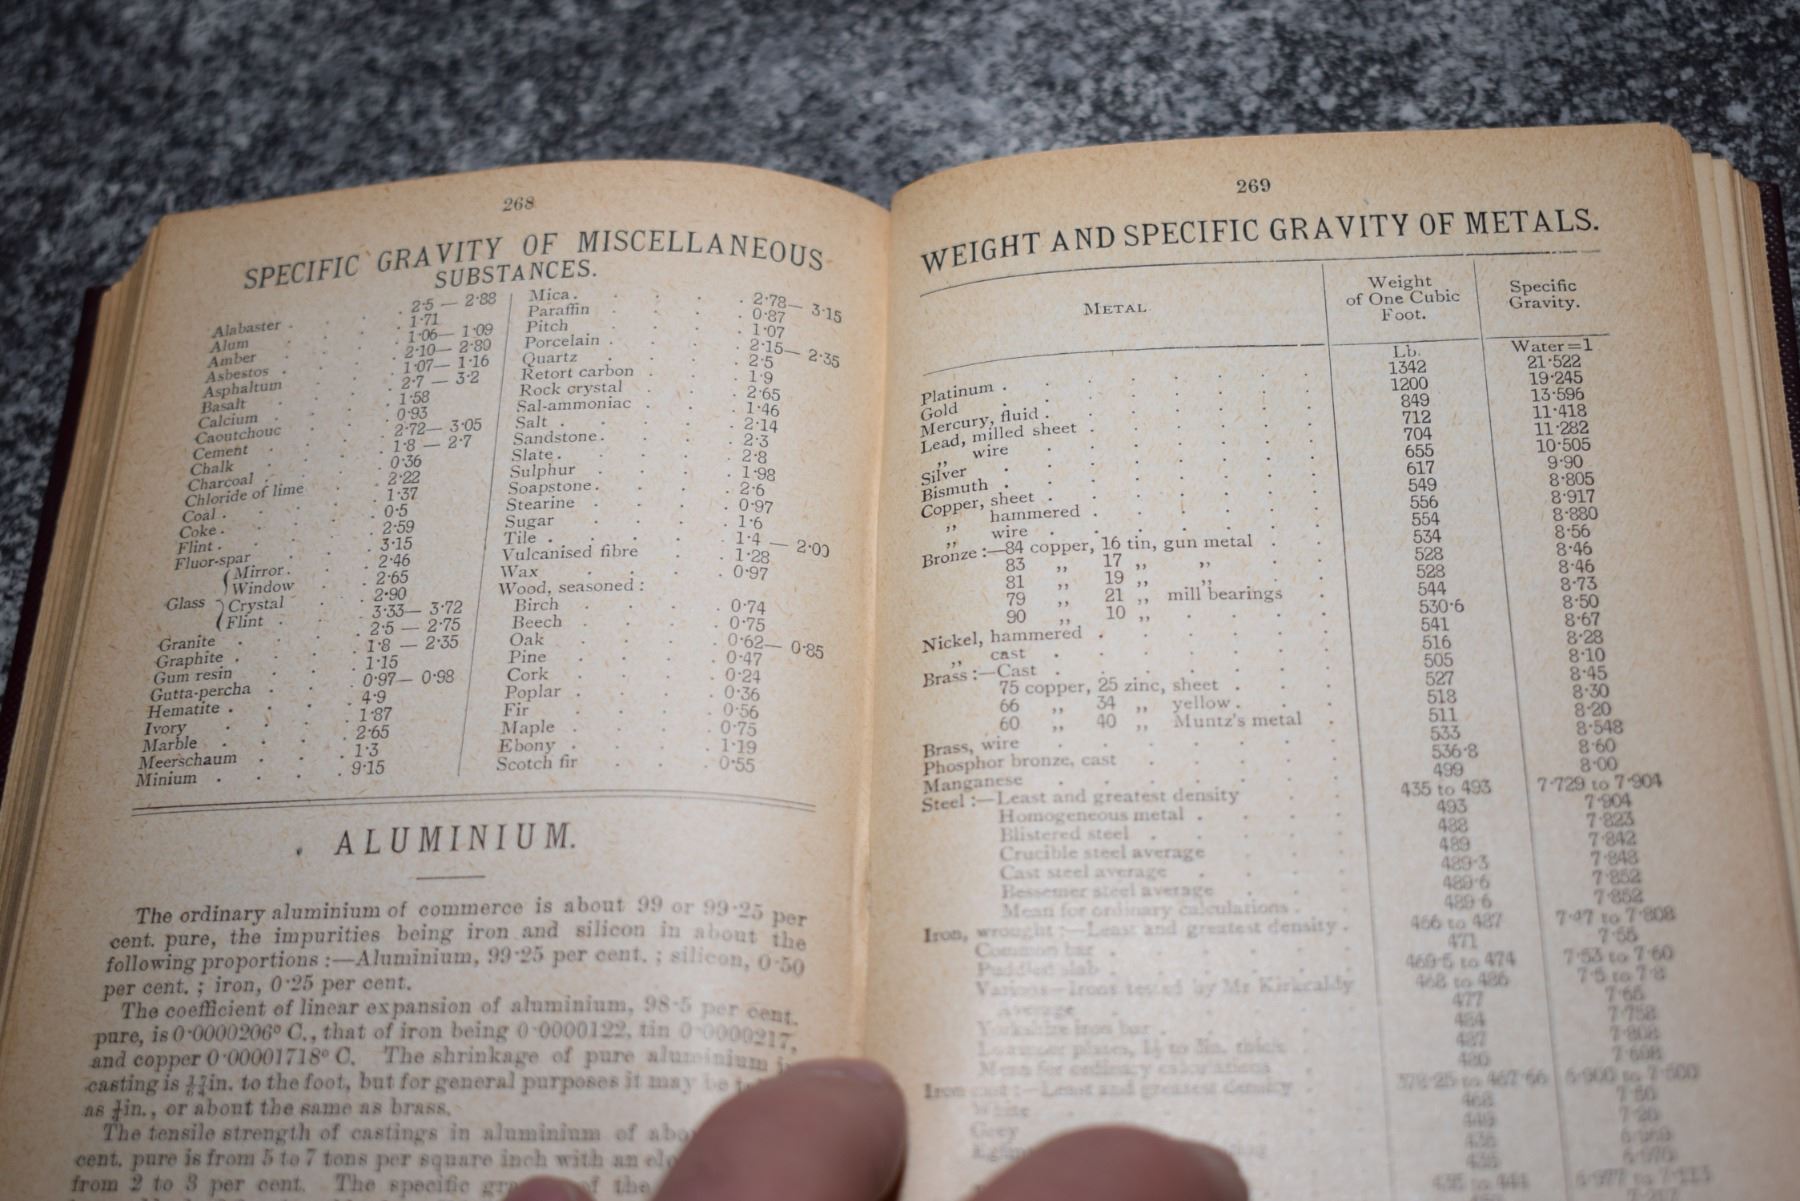 268
SPECIFIC GRAVITY OF MISCELLANEOUS
SUBSTANCES.
Alabaster . 2·5 — 2·88
Alum 1·71
Amber 1·06— 1·09
Asbestos . 2·10— 2·80
Asphaltum 1·07— 1·16
Basalt 2·7 — 3·2
Calcium 1·58
Caoutchouc 0·93
Cement 2·72— 3·05
Chalk 1·8 — 2·7
Charcoal . 0·36
Chloride of lime 2·22
Coal . 1·37
Coke . 0·5
Flint . 2·59
Fluor-spar 3·15
Glass { Mirror . 2·46
Window 2·65
Crystal 2·90
Flint 3·33— 3·72
Granite 2·5 — 2·75
Graphite . 1·8 — 2·35
Gum resin 1·15
Gutta-percha 0·97— 0·98
Hematite . 4·9
Ivory 1·87
Marble 2·65
Meerschaum 1·3
Minium 9·15
Mica . 2·78— 3·15
Paraffin 0·87
Pitch 1·07
Porcelain . 2·15— 2·35
Quartz 2·5
Retort carbon 1·9
Rock crystal 2·65
Sal-ammoniac 1·46
Salt . 2·14
Sandstone . 2·3
Slate . 2·8
Sulphur 1·98
Soapstone . 2·6
Stearine 0·97
Sugar 1·6
Tile . 1·4 — 2·00
Vulcanised fibre 1·28
Wax 0·97
Wood, seasoned :
Birch 0·74
Beech 0·75
Oak 0·62— 0·85
Pine 0·47
Cork 0·24
Poplar 0·36
Fir 0·56
Maple 0·75
Ebony 1·19
Scotch fir 0·55
ALUMINIUM.
The ordinary aluminium of commerce is about 99 or 99·25 per
cent. pure, the impurities being iron and silicon in about the
following proportions :—Aluminium, 99·25 per cent. ; silicon, 0·50
per cent. ; iron, 0·25 per cent.
The coefficient of linear expansion of aluminium, 98·5 per cent.
pure, is 0·0000206° C., that of iron being 0·0000122, tin 0·0000217,
and copper 0·00001718° C. The shrinkage of pure aluminium in
casting is in. to the foot, but for general purposes it may be
as in., or about the same as brass.
The tensile strength of castings in aluminium of
cent. pure is from 5 to 7 tons per square inch with an
from 2 to 3 per cent. The specific of the
269
WEIGHT AND SPECIFIC GRAVITY OF METALS.
METAL Weight of One Cubic Foot. Specific Gravity.
Lb. Water=1
Platinum . 1342 21·522
Gold 1200 19·245
Mercury, fluid . 849 13·596
Lead, milled sheet 712 11·418
,, wire 704 11·282
Silver 655 10·505
Bismuth . 617 9·90
Copper, sheet . 549 8·805
,, hammered . 556 8·917
,, wire 554 8·880
Bronze :—84 copper, 16 tin, gun metal 534 8·56
83 ,, 17 ,, ,, 528 8·46
81 ,, 19 ,, ,, 528 8·46
79 ,, 21 ,, mill bearings 544 8·73
90 ,, 10 ,, 530·6 8·50
Nickel, hammered 541 8·67
,, cast 516 8·28
Brass :—Cast 505 8·10
75 copper, 25 zinc, sheet 527 8·45
66 ,, 34 ,, yellow . 518 8·30
60 ,, 40 ,, Muntz's metal 511 8·20
Brass, wire 533 8·548
Phosphor bronze, cast 536·8 8·60
Manganese 499 8·00
Steel :—Least and greatest density 435 to 493 7·729 to 7·904
Homogeneous metal . 493 7·904
Blistered steel 488 7·823
Crucible steel average 489 7·842
Cast steel average 489·3 7·848
Bessemer steel average 489·6 7·852
Mean for ordinary calculations . 489·6 7·852
Iron, wrought :—Least and greatest density . 466 to 487 7·47 to 7·808
Common bar 471 7·55
Puddled slab . 469·5 to 474 7·53 to 7·60
Various—Irons tested by Mr Kirkcaldy 468 to 486 7·5 to 7·8
average 477 7·65
Yorkshire iron bar . 484 7·758
plates, thick 487 7·808
Mean for ordinary calculations 480
Iron cast :—Least and greatest density 378·25 to 467·66 6·900 to 7·500
White 468 7·50
Grey 449 7·20